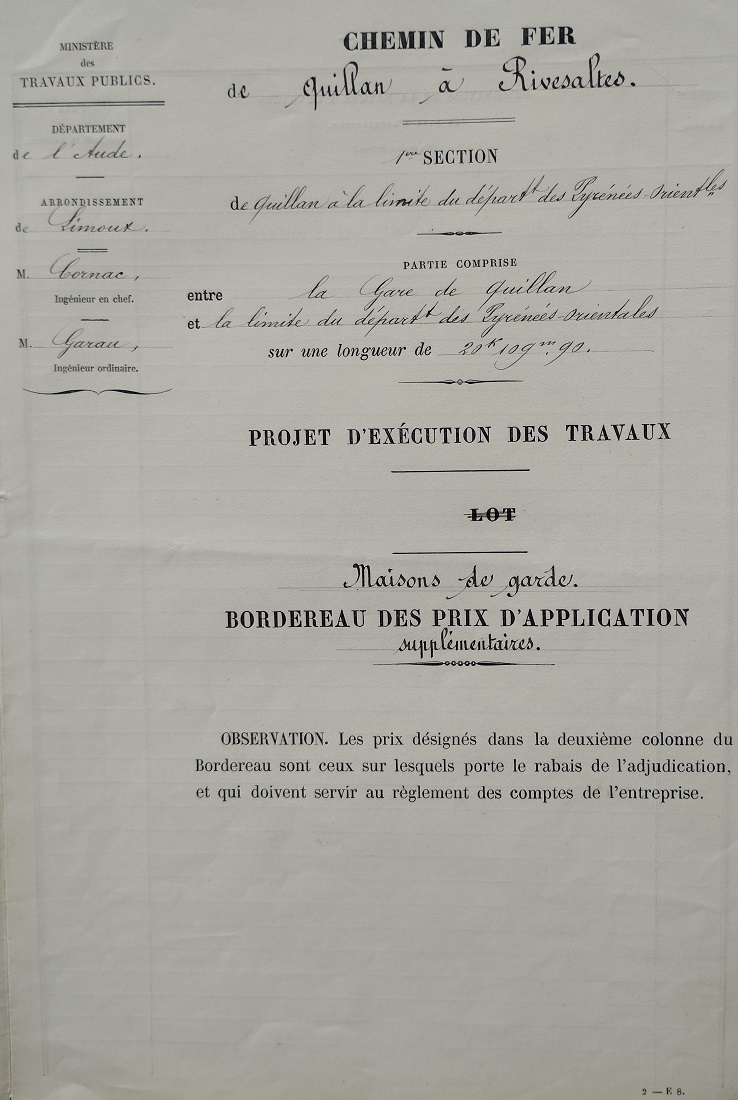 MINISTÈRE
des
TRAVAUX PUBLICS.
DÉPARTEMENT
de l'Aude.
ARRONDISSEMENT
de Limoux.
M. Cornac,
Ingénieur en chef.
M. Garau,
Ingénieur ordinaire.
CHEMIN DE FER
de Quillan à Rivesaltes.
1ère SECTION
de Quillan à la limite du départt des Pyrénées-Orientles
PARTIE COMPRISE
entre la Gare de Quillan
et la limite du départt des Pyrénées-Orientales
sur une longueur de 20k 109m.90.
PROJET D'EXÉCUTION DES TRAVAUX
LOT
Maisons de garde.
BORDEREAU DES PRIX D'APPLICATION
supplémentaires.
OBSERVATION. Les prix désignés dans la deuxième colonne du
Bordereau sont ceux sur lesquels porte le rabais de l'adjudication,
et qui doivent servir au règlement des comptes de l'entreprise.
2 — E 8.